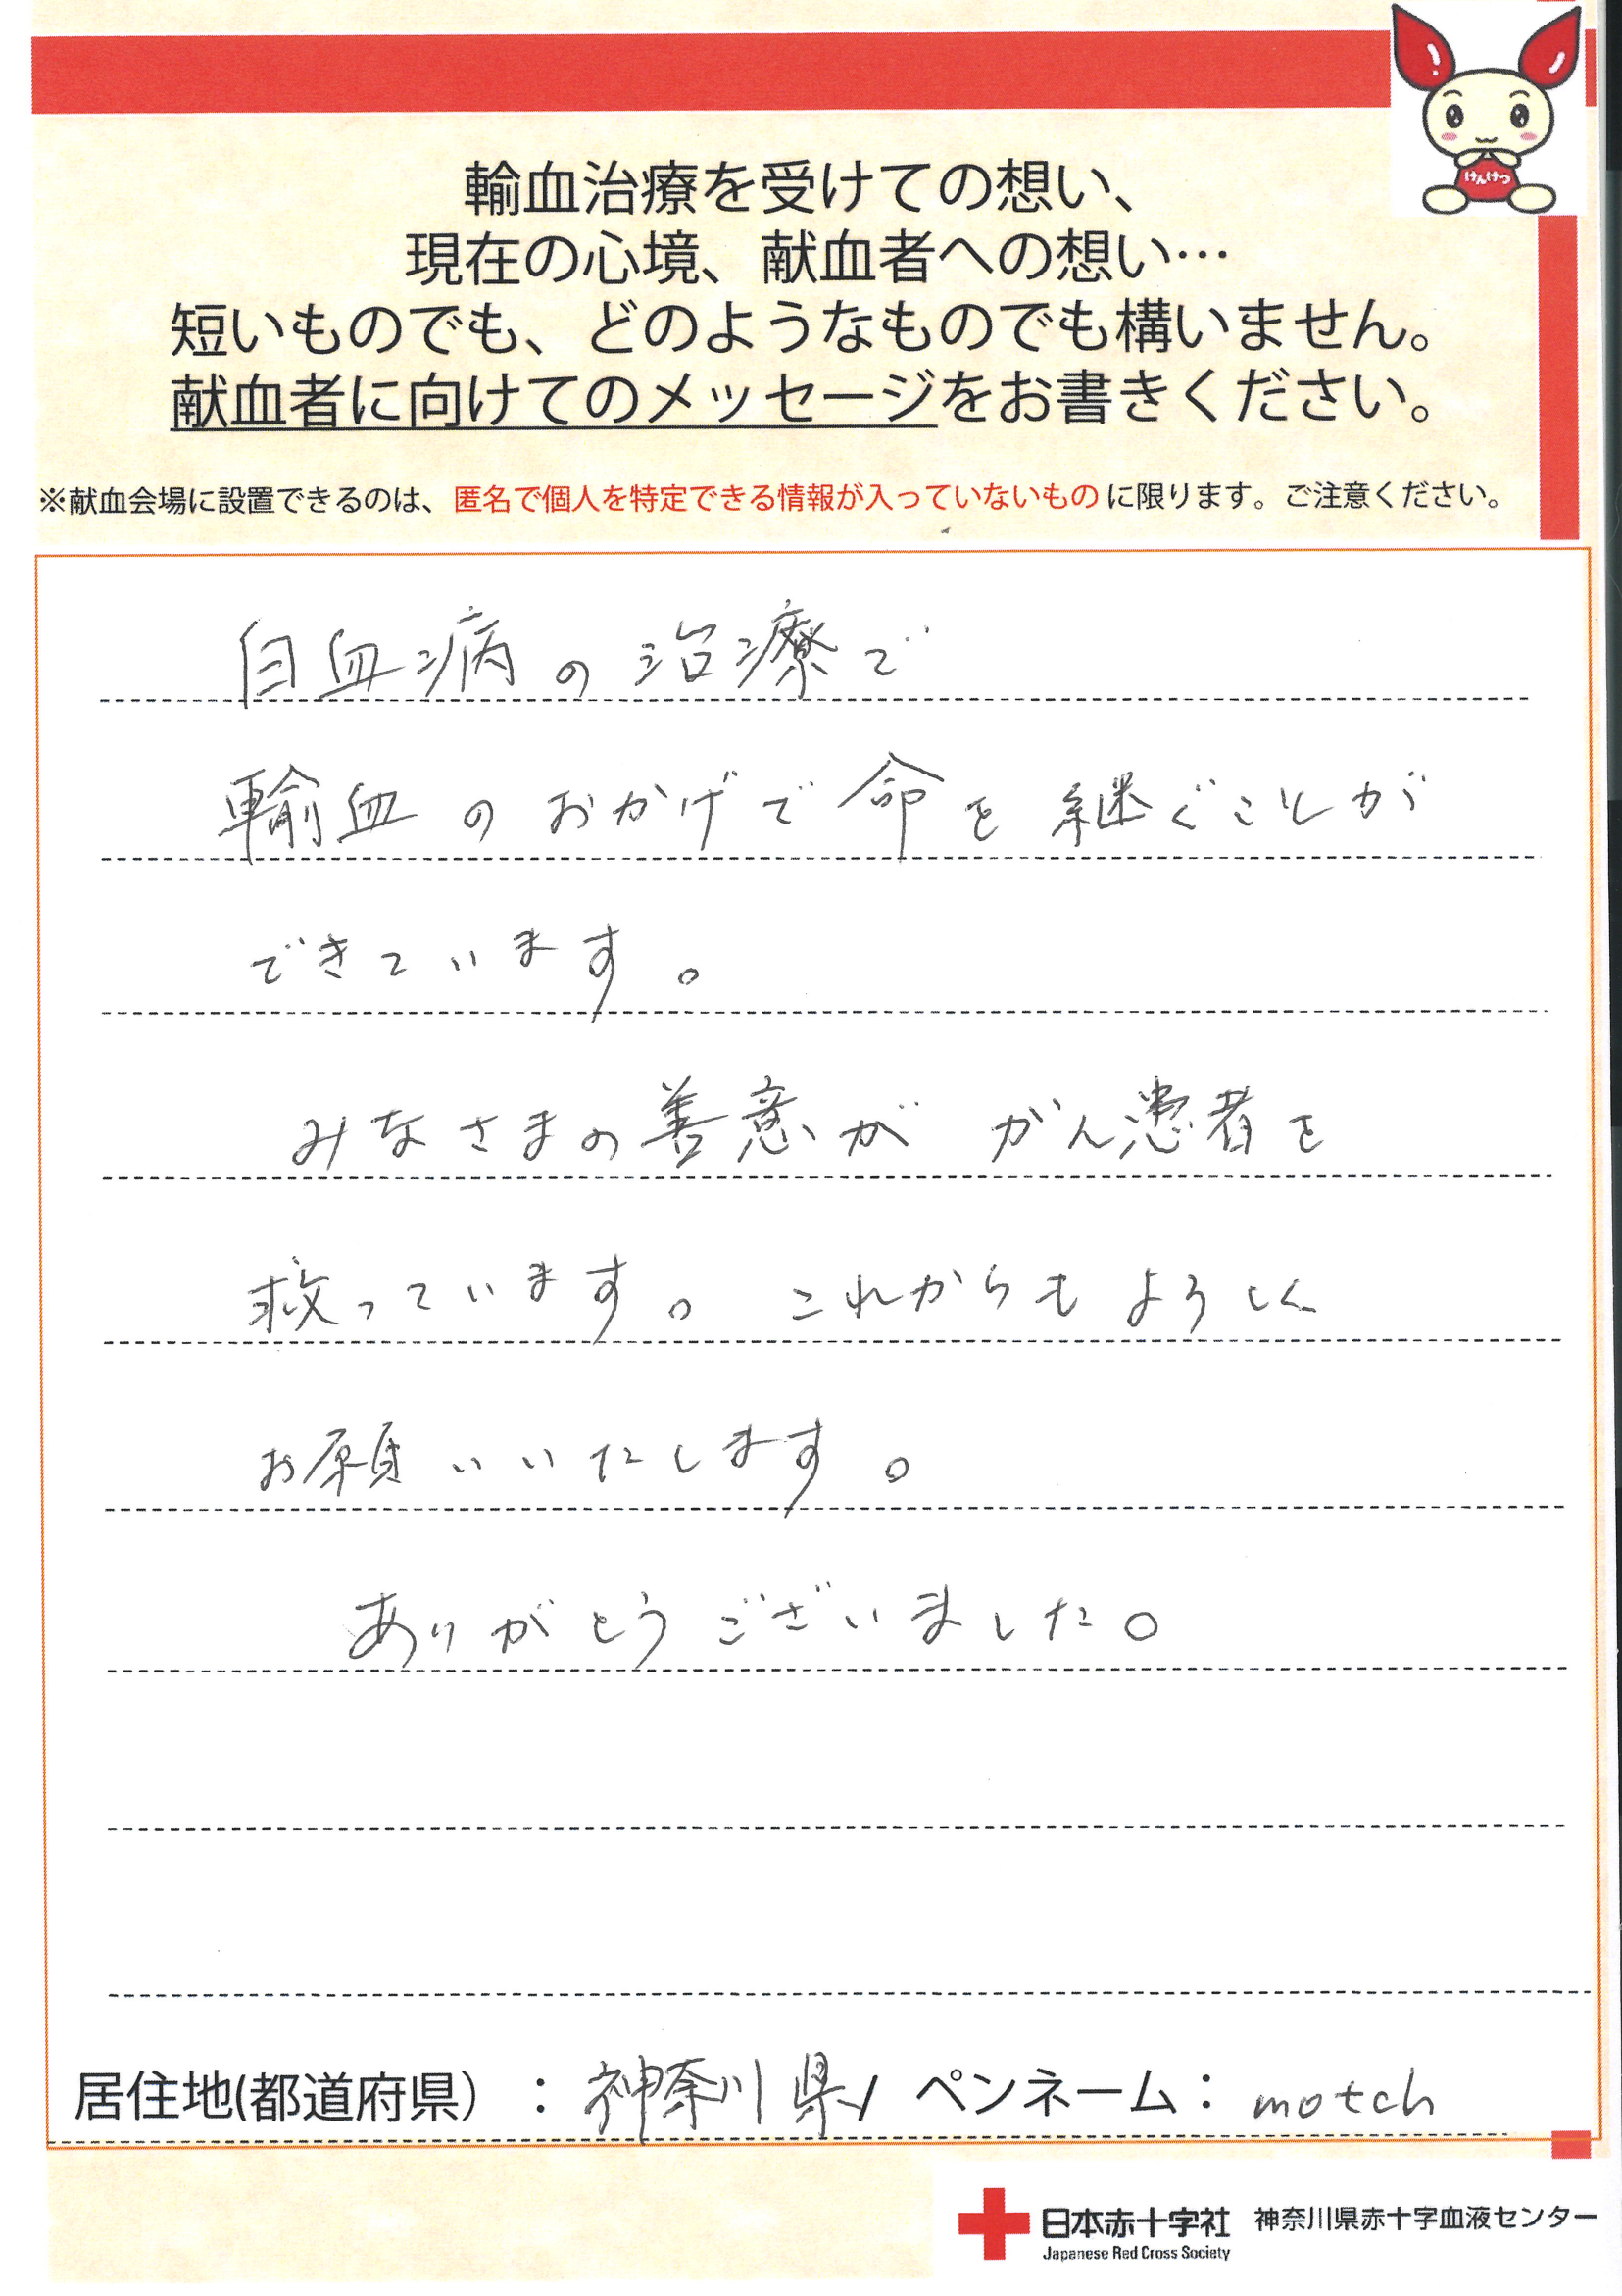 けんけつ
輸血治療を受けての想い、
現在の心境、献血者への想い…
短いものでも、どのようなものでも構いません。
献血者に向けてのメッセージをお書きください。
※献血会場に設置できるのは、匿名で個人を特定できる情報が入っていないものに限ります。ご注意ください。
白血病の治療で
輸血のおかげで命を継ぐことが
できています。
みなさまの善意が がん患者を
救っています。 これからもよろしく
お願いいたします。
ありがとうございました。
居住地(都道府県) : 神奈川県 / ペンネーム: motch
日本赤十字社 神奈川県赤十字血液センター
Japanese Red Cross Society